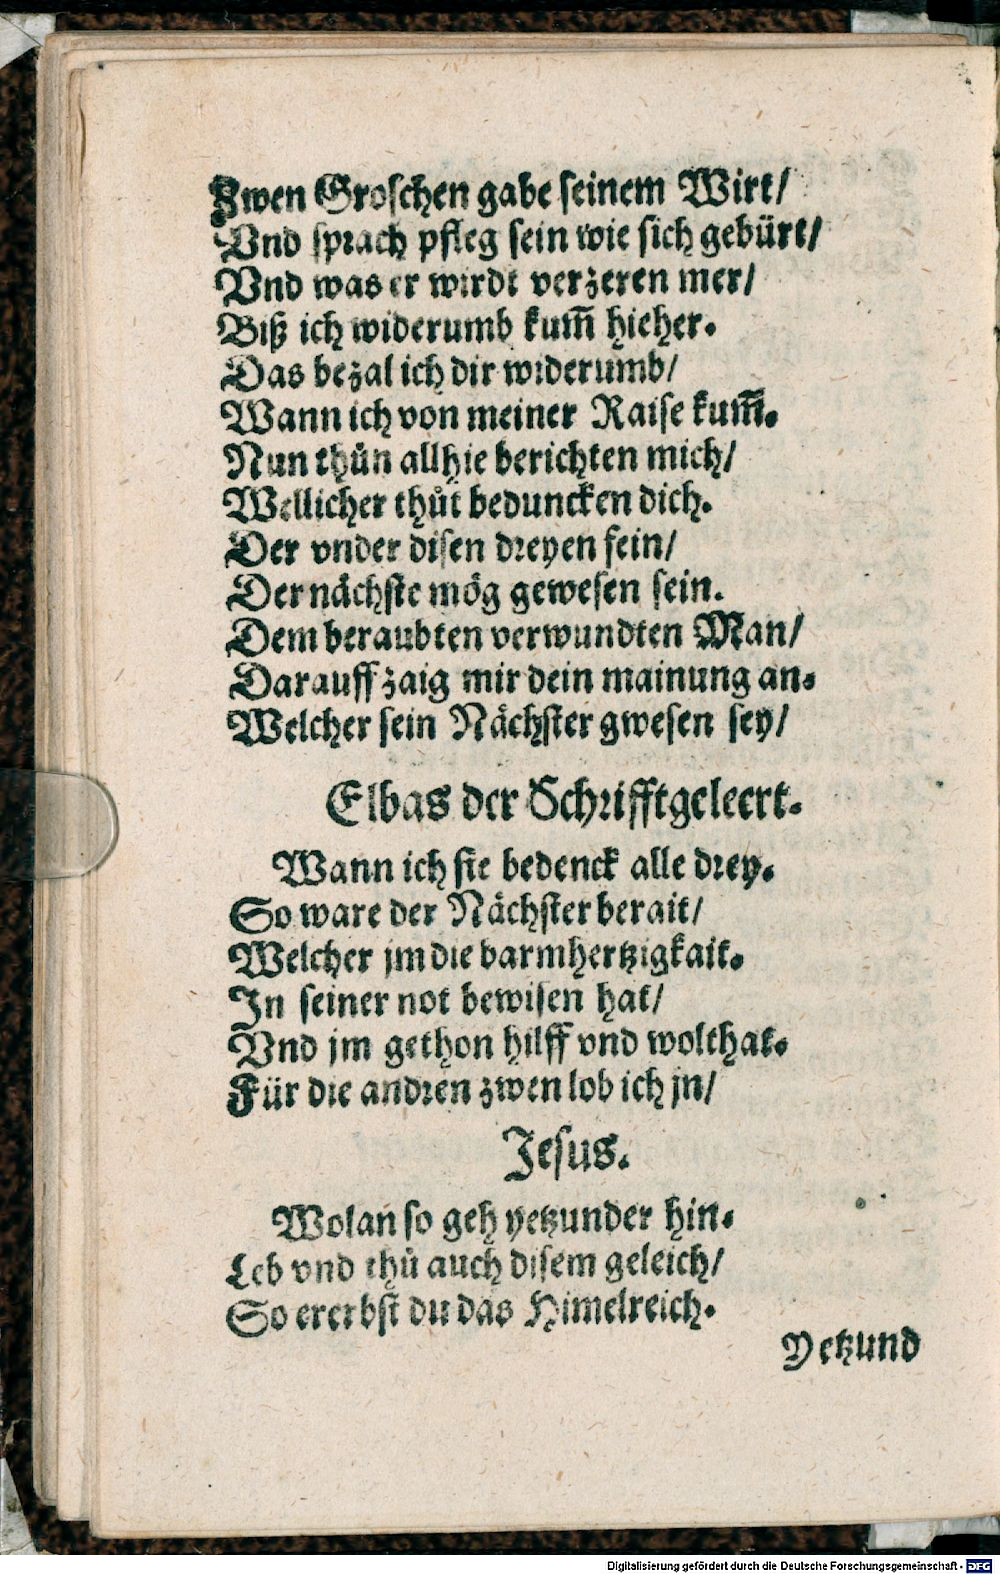 Zwen Groschen gabe seinem Wirt/
Vnd sprach pfleg sein wie sich gebürt/
Vnd was er wirdt verzeren mer/
Biß ich widerumb kum̄ hieher.
Das bezal ich dir widerumb/
Wann ich von meiner Raise kum̄.
Nun thůn allhie berichten mich/
Wellicher thůt beduncken dich.
Der vnder disen dreyen fein/
Der nächste mög gewesen sein.
Dem beraubten verwundten Man/
Darauff zaig mir dein mainung an.
Welcher sein Nächster gwesen sey/
Elbas der Schrifftgeleert.
Wann ich sie bedenck alle drey.
So ware der Nächster berait/
Welcher jm die barmhertzigkait.
In seiner not bewisen hat/
Vnd jm gethon hilff vnd wolthat.
Für die andren zwen lob ich jn/
Jesus.
Wolan so geh yetzunder hin.
Leb vnd thů auch disem geleich/
So ererbst du das Himelreich.
Yetzund
Digitalisierung gefördert durch die Deutsche Forschungsgemeinschaft - DFG